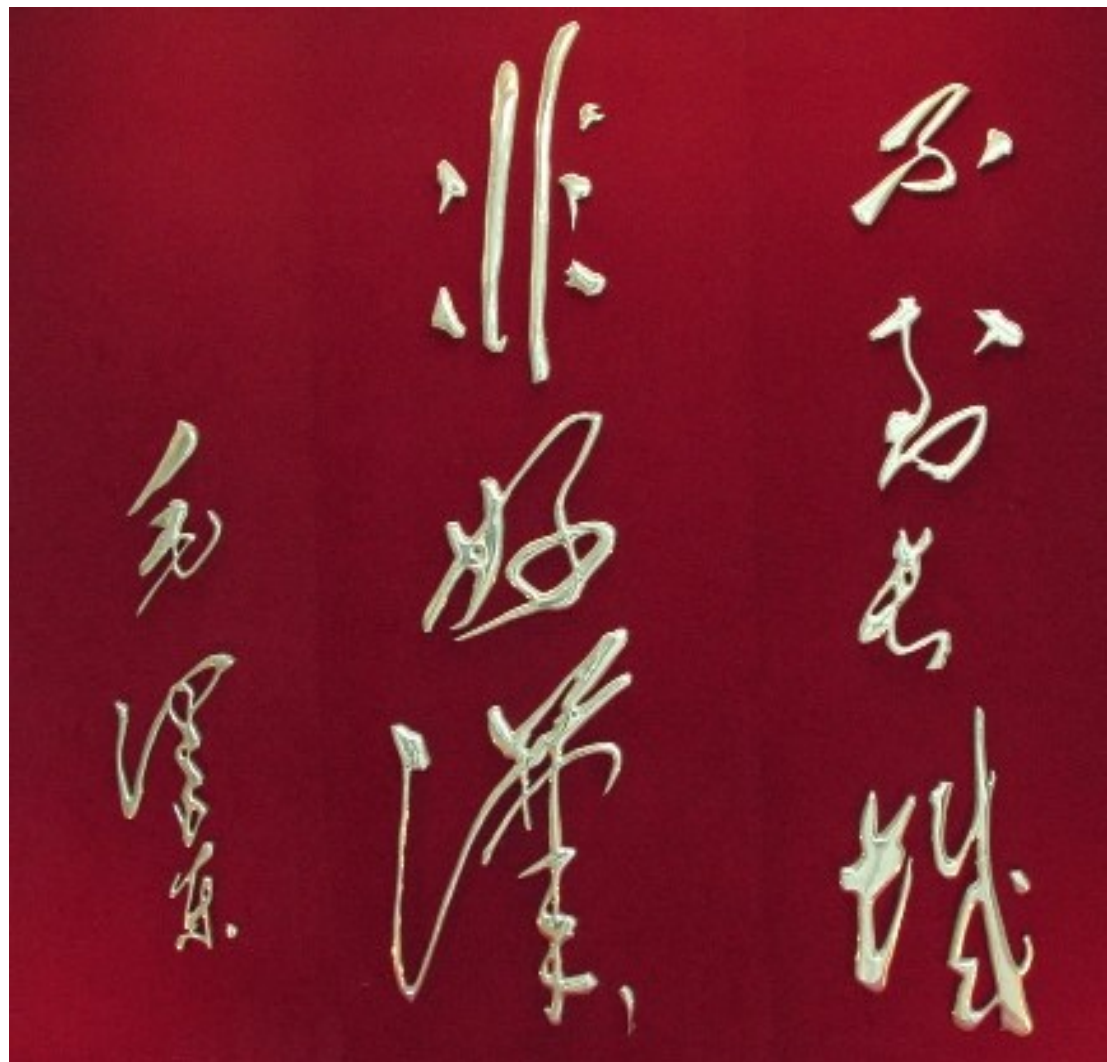 不到長城
非好漢
毛澤東